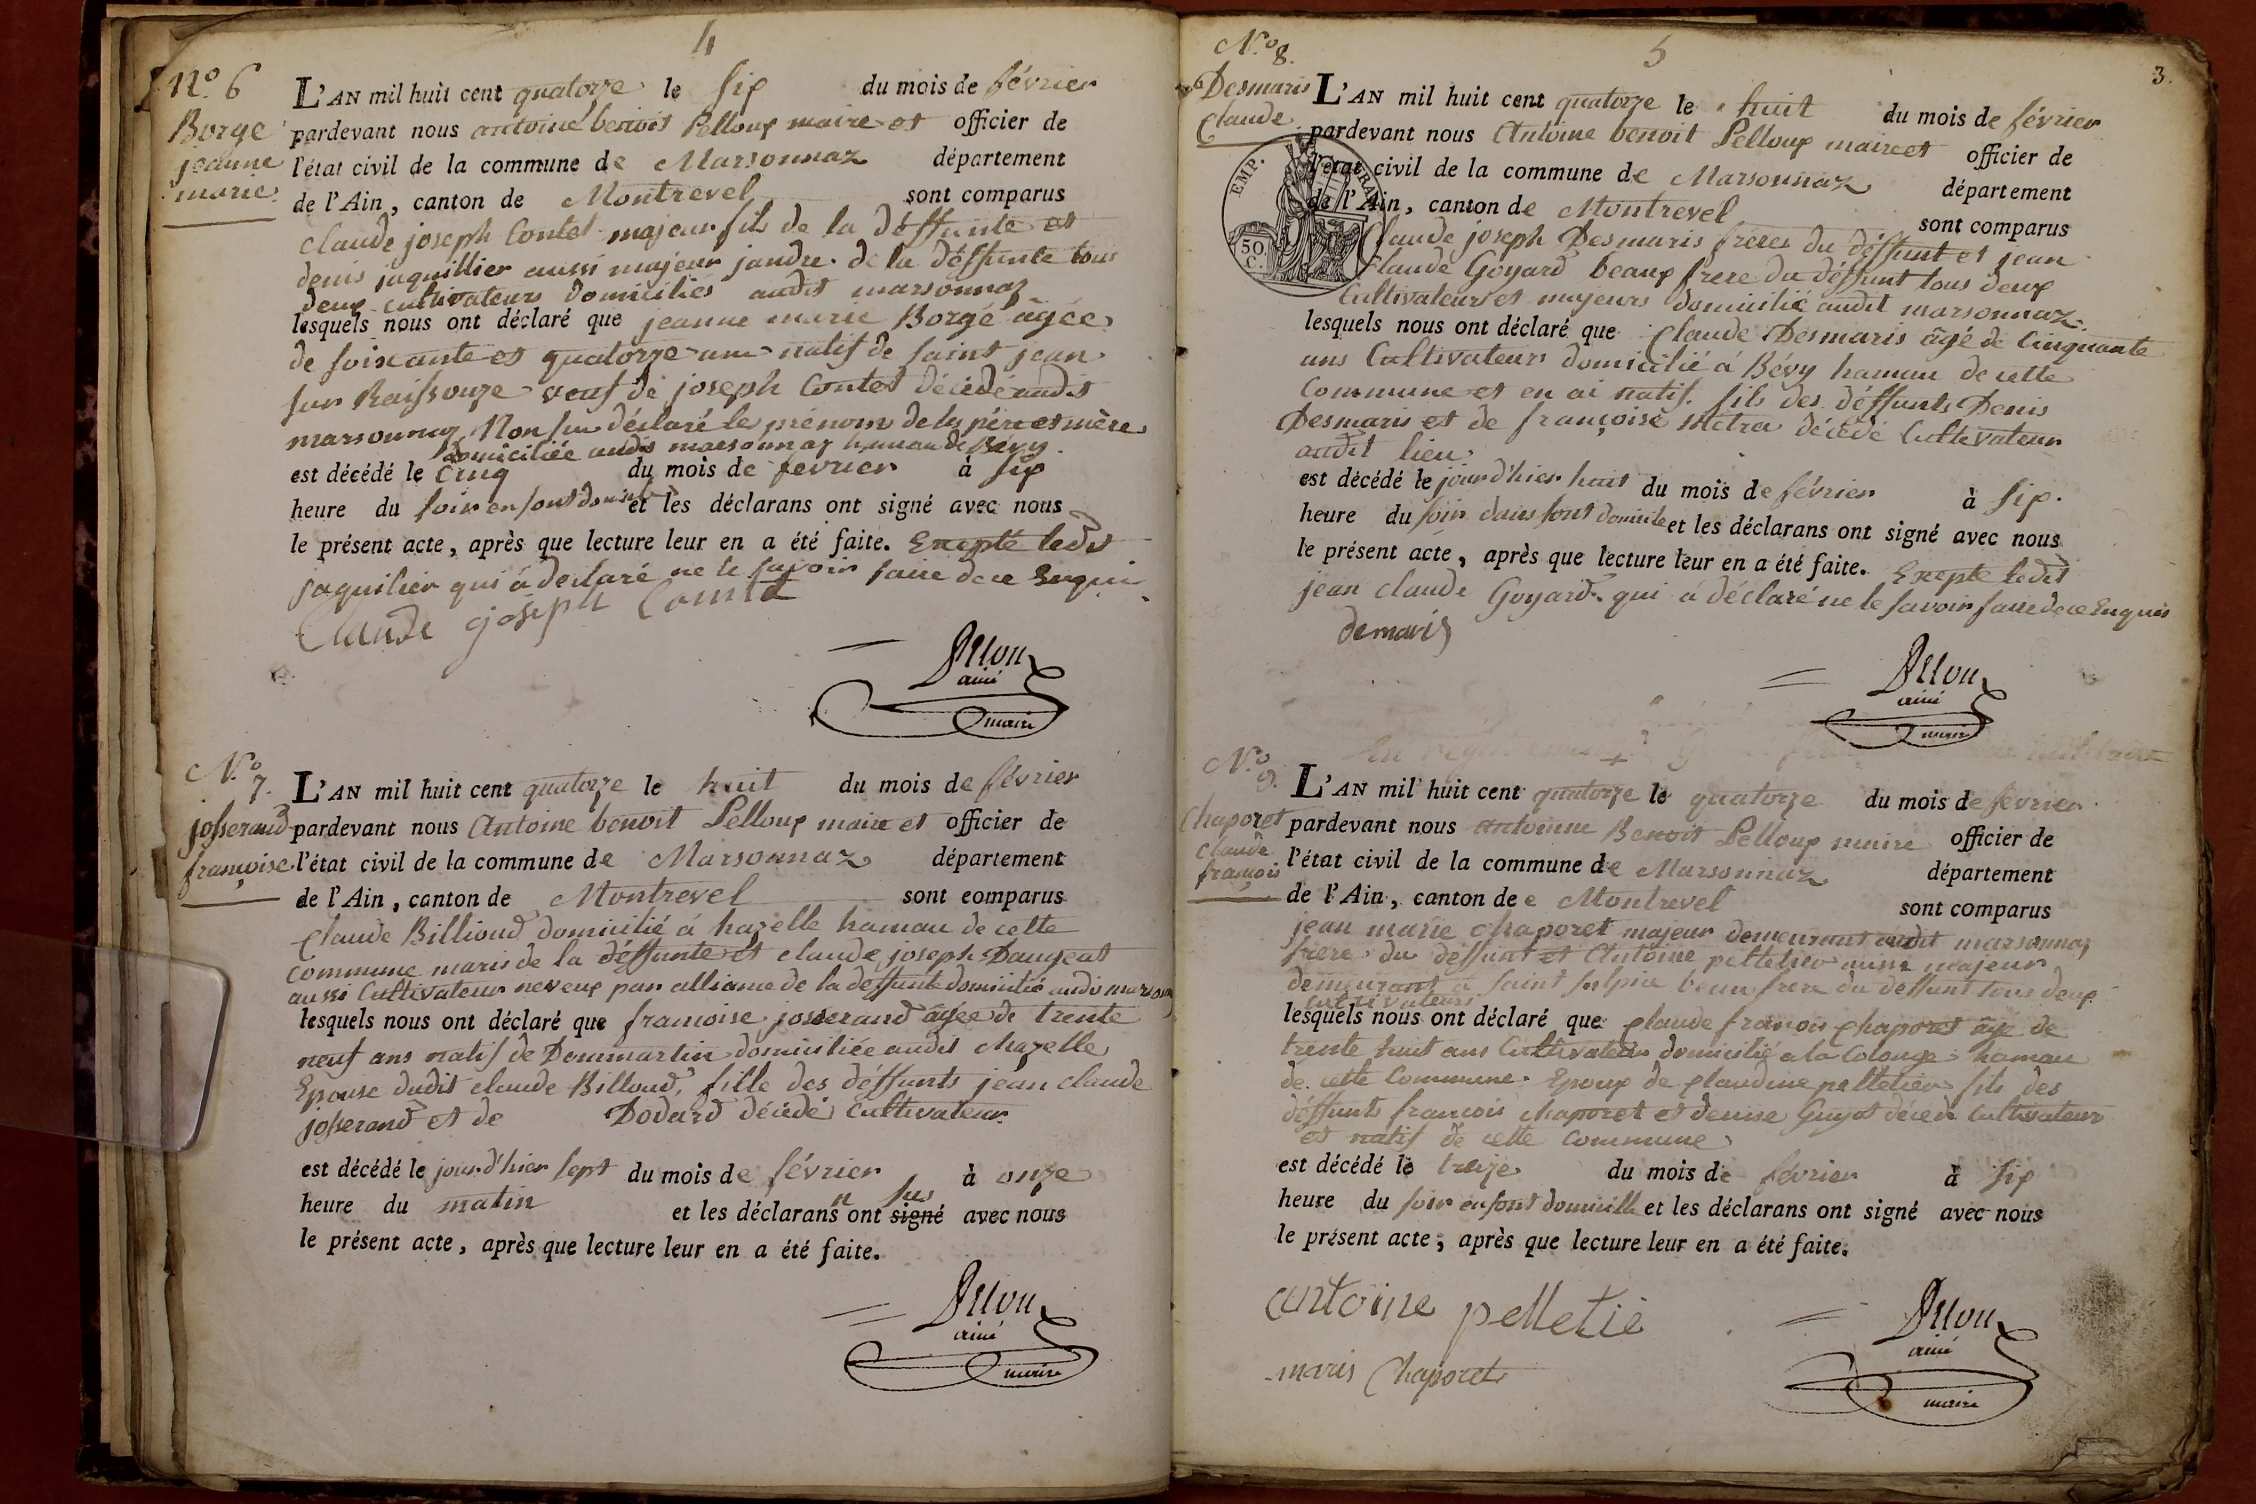 4
N.º 6
Borge
jeanne
marie
L'AN mil huit cent quatorze le six du mois de février
pardevant nous antoine benoit Pelloux maire et officier de
l'état civil de la commune de Marsonnaz département
de l'Ain, canton de Montrevel sont comparus
claude joseph Contet majeur fils de la déffunte et
denis jaquillier aussi majeur jandre de la déffunte tous
deux cultivateurs domiciliés audit marsonnaz
lesquels nous ont déclaré que jeanne marie Borgé âgée
de soixante et quatorze ans natif de saint jean
sur Raissouze veuf de joseph Contet décédé audit
marsonnaz Non su déclaré le prénom de ses père et mère
domiciliée audit marsonnaz hameau de Bévy
est décédé le Cinq du mois de fevrier à six
heure du soir en sont domicile et les déclarans ont signé avec nous
le présent acte, après que lecture leur en a été faite. Excepté ledit
jaquilier qui á déclaré ne le savoir faire de ce Enquis
Claude joseph Contet
Pellou
ainé
maire
N.º
7.
josserand
françoise
L'AN mil huit cent quatorze le huit du mois de février
pardevant nous Antoine benoit Pelloux maire et officier de
l'état civil de la commune de Marsonnaz département
de l'Ain, canton de Montrevel sont comparus
Claude Billioud domicilié á hazelle hamau de cette
commune maris de la déffunte et claude joseph Daujeat
aussi Cultivateur neveux par alliance de la deffunte domicilié audit marsonnaz
lesquels nous ont déclaré que francoise josserand âgée de trente
neuf ans natif de Dommartin domiciliée audit chazelle
Epouse dudit claude Billoud, fille des déffunts jean claude
josserand et de Dodard décédé cultivateur
est décédé le jour d'hier sept du mois de février à onze
heure du matin et les déclarans n ont signé sus avec nous
le présent acte, après que lecture leur en a été faite.
Pellou
ainé
maire
5
3.
N.º 8.
Desmaris
Claude
EMP. FRAN.
50
C.
L'AN mil huit cent quatorze le huit du mois de février
pardevant nous Antoine benoit Pelloux maire et officier de
l'état civil de la commune de Marsonnaz département
de l'Ain, canton de Montrevel sont comparus
Claude joseph Desmaris freres du déffunt et jean
Claude Goyard beaux frere du déffunt tous deux
Cultivateurs et majeurs domicilié audit marsonnaz
lesquels nous ont déclaré que Claude Desmaris âgé de Cinquante
ans Cultivateurs domicilié á Bévy hamau de cette
Commune et en ai natif. fils des déffunts Denis
Desmaris et de françoise Métra décédé Cultivateur
audit lieu
est décédé le jour d'hier huit du mois de février à six
heure du soir dans sont domicile et les déclarans ont signé avec nous
le présent acte, après que lecture leur en a été faite. Excepte ledit
jean claude Goyard qui á déclaré ne le savoir faire de ce Enquis
demaris
Pellou
ainé
maire
N.º
9.
Chaporet
claude
françois
L'AN mil huit cent quatorze le quatorze du mois de fevrier
pardevant nous antoinne Benoit Pelloux maire officier de
l'état civil de la commune de Marsonnaz département
de l'Ain, canton de e Montrevel sont comparus
jean marie chaporet majeur demeurant audit marsonnaz
frere du déffunt et Antoine pelletier aussi majeur
demeurant a saint sulpice beau frere du deffunt tous deux
cultivateurs
lesquels nous ont déclaré que Claude francois Chaporet âge de
trente huit ans Cultivateur domicilié a la Colonge hamau
de cette Commune. Epoux de Claudine pelletier fils des
déffunts francois chaporet et denise Guyot décédé Cultivateur
et natif de cette commune
est décédé le treize du mois de février à six
heure du soir en sont domicille et les déclarans ont signé avec nous
le présent acte, après que lecture leur en a été faite.
antoine pelletié
maris Chaporet
Pellou
ainé
maire